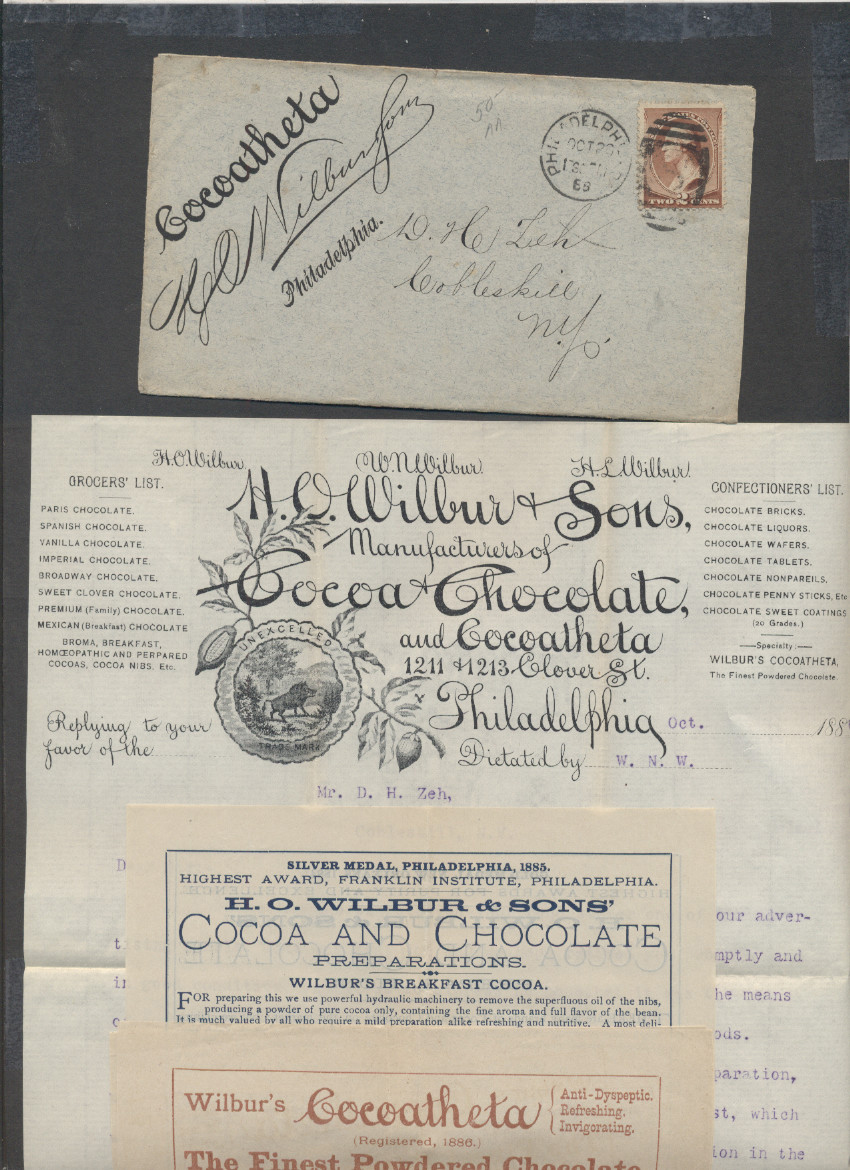 Cocoatheta
H O Wilbur & Sons
Philadelphia.
50-
PHILADELPHIA
OCT 29
86
TWO 2 CENTS
D. H. Zeh
Cobleskill
N.Y.
H.O.Wilbur. W.N.Wilbur. H.L.Wilbur.
H.O. Wilbur & Sons,
Manufacturers of
Cocoa & Chocolate,
and Cocoatheta
1211 & 1213 Clover St.
Philadelphia Oct. 188
Dictated by W. N. W.
GROCERS' LIST.
PARIS CHOCOLATE.
SPANISH CHOCOLATE.
VANILLA CHOCOLATE.
IMPERIAL CHOCOLATE.
BROADWAY CHOCOLATE,
SWEET CLOVER CHOCOLATE.
PREMIUM (Family) CHOCOLATE,
MEXICAN (Breakfast) CHOCOLATE
BROMA, BREAKFAST,
HOMŒOPATHIC AND PERPARED
COCOAS, COCOA NIBS, Etc.
UNEXCELLED
TRADE MARK
CONFECTIONERS' LIST.
CHOCOLATE BRICKS.
CHOCOLATE LIQUORS.
CHOCOLATE WAFERS.
CHOCOLATE TABLETS.
CHOCOLATE NONPAREILS,
CHOCOLATE PENNY STICKS, Etc
CHOCOLATE SWEET COATINGS
(20 Grades.)
—Specialty:—
WILBUR'S COCOATHETA,
The Finest Powdered Chocolate.
Replying to your
favor of the
Mr. D. H. Zeh,
D
our adver-
t
mptly and
in
he means
o
ods.
paration,
st, which
ion in the
SILVER MEDAL, PHILADELPHIA, 1885.
HIGHEST AWARD, FRANKLIN INSTITUTE, PHILADELPHIA.
H. O. WILBUR & SONS'
COCOA AND CHOCOLATE
PREPARATIONS.
WILBUR'S BREAKFAST COCOA.
FOR preparing this we use powerful hydraulic machinery to remove the superfluous oil of the nibs,
producing a powder of pure cocoa only, containing the fine aroma and full flavor of the bean.
It is much valued by all who require a mild preparation alike refreshing and nutritive. A most deli-
Wilbur's Cocoatheta { Anti-Dyspeptic.
Refreshing.
Invigorating.
(Registered, 1886.)
The Finest Powdered Chocolate